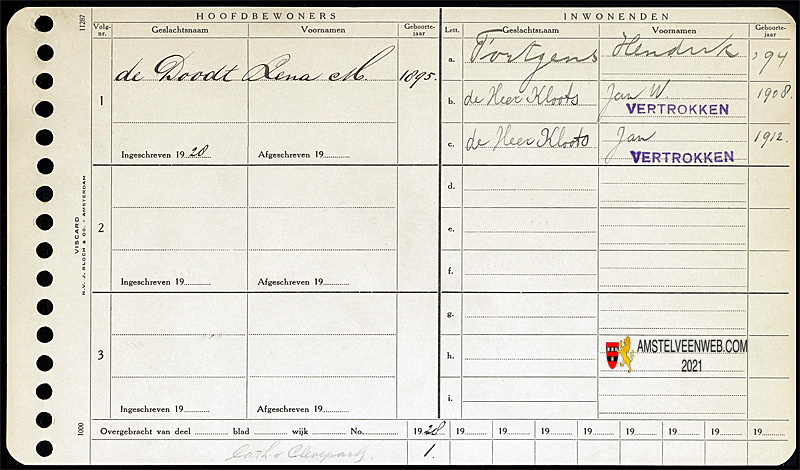 HOOFDBEWONERS
INWONENDEN
11287
Volg-nr.
Geslachtsnaam
Voornamen
Geboorte-jaar
Lett.
Geslachtsnaam
Voornamen
Geboorte-jaar
1
de Doodt
Lena M.
1895.
Ingeschreven 1928
Afgeschreven 19
a.
Fortgens
Hendrik
'94
b.
de Heer Kloots
Jan W.
1908.
VERTROKKEN
c.
de Heer Kloots
Jan
1912.
VERTROKKEN
d.
2
e.
f.
Ingeschreven 19
Afgeschreven 19
VISCARD
N.V. J. BLOCH & CO. - AMSTERDAM
3
g.
h.
AMSTELVEENWEB.COM
2021
i.
Ingeschreven 19
Afgeschreven 19
1000
Overgebracht van deel
blad
wijk
No.
1928
19
19
19
19
19
19
19
19
1.